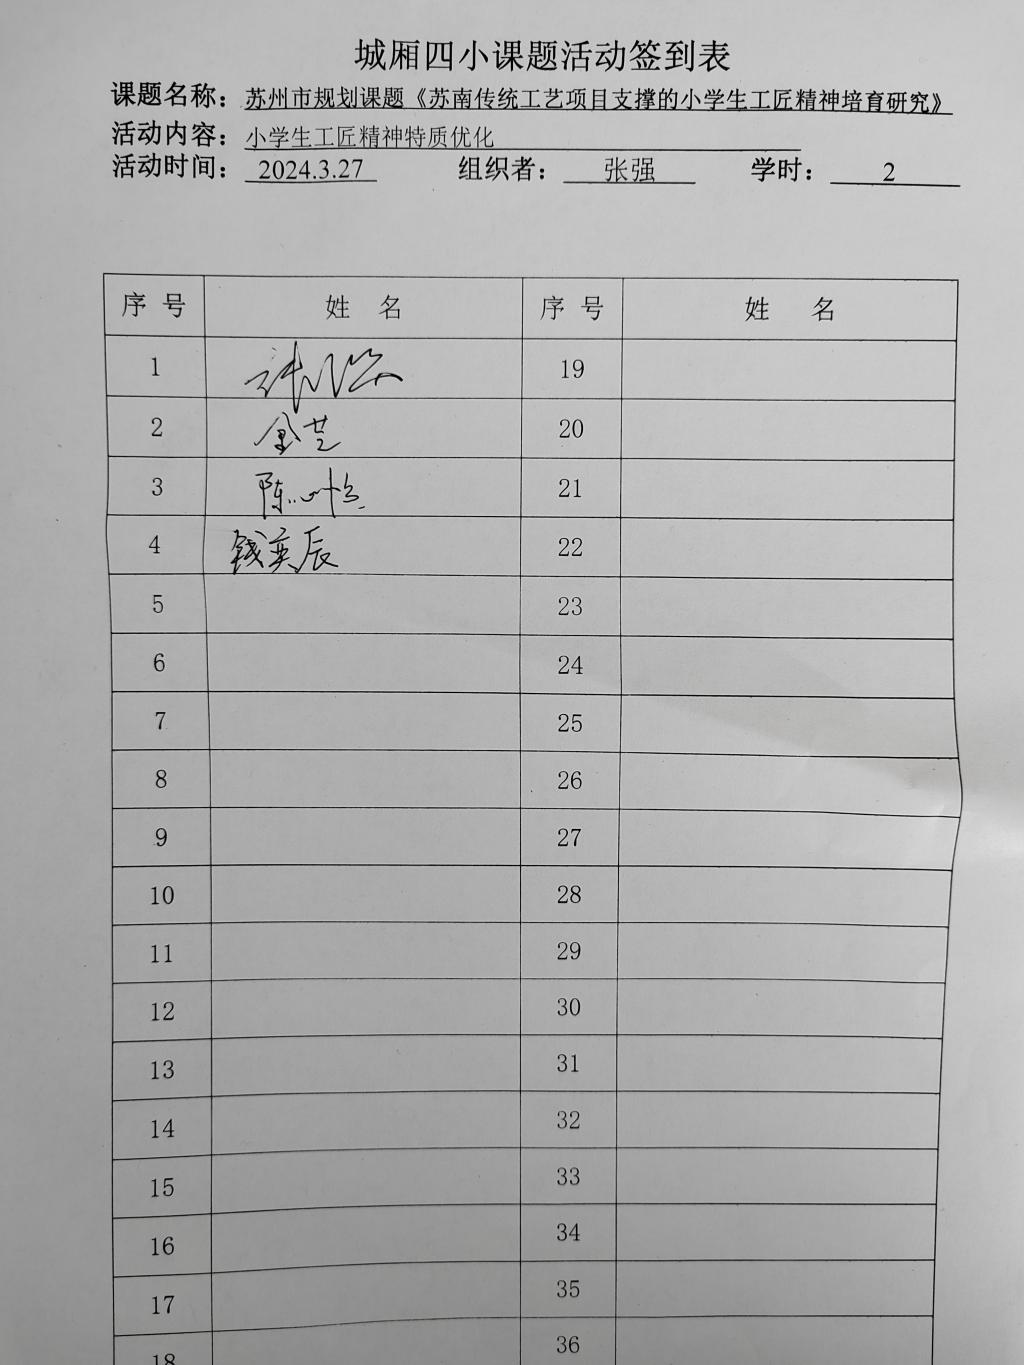 城厢四小课题活动签到表
课题名称：苏州市规划课题《苏南传统工艺项目支撑的小学生工匠精神培育研究》
活动内容：小学生工匠精神特质优化
活动时间：2024.3.27 组织者：张强 学时：2
序号 姓名 序号 姓名
1 19
2 金芝 20
3 陈 21
4 钱奕辰 22
5 23
6 24
7 25
8 26
9 27
10 28
11 29
12 30
13 31
14 32
15 33
16 34
17 35
18 36